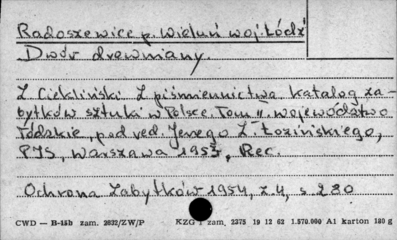 Radoszewice p. Wieluń woj. Łódź
Dwór drewniany.
Z. Ciekliński Z piśmiennictwa. Katalog za-
bytków sztuki w Polsce. Tom II. województwo
łódzkie, pod red. Jerzego Z. Łozińskiego,
PIS, Warszawa 1953, Rec.
Ochrona Zabytków 1954, z. 4, s 280
CWD — B-15b zam. 2032/ZW/P KZG 1 zam. 2375 19 12 62 1.570.000 A1 karton 180 g